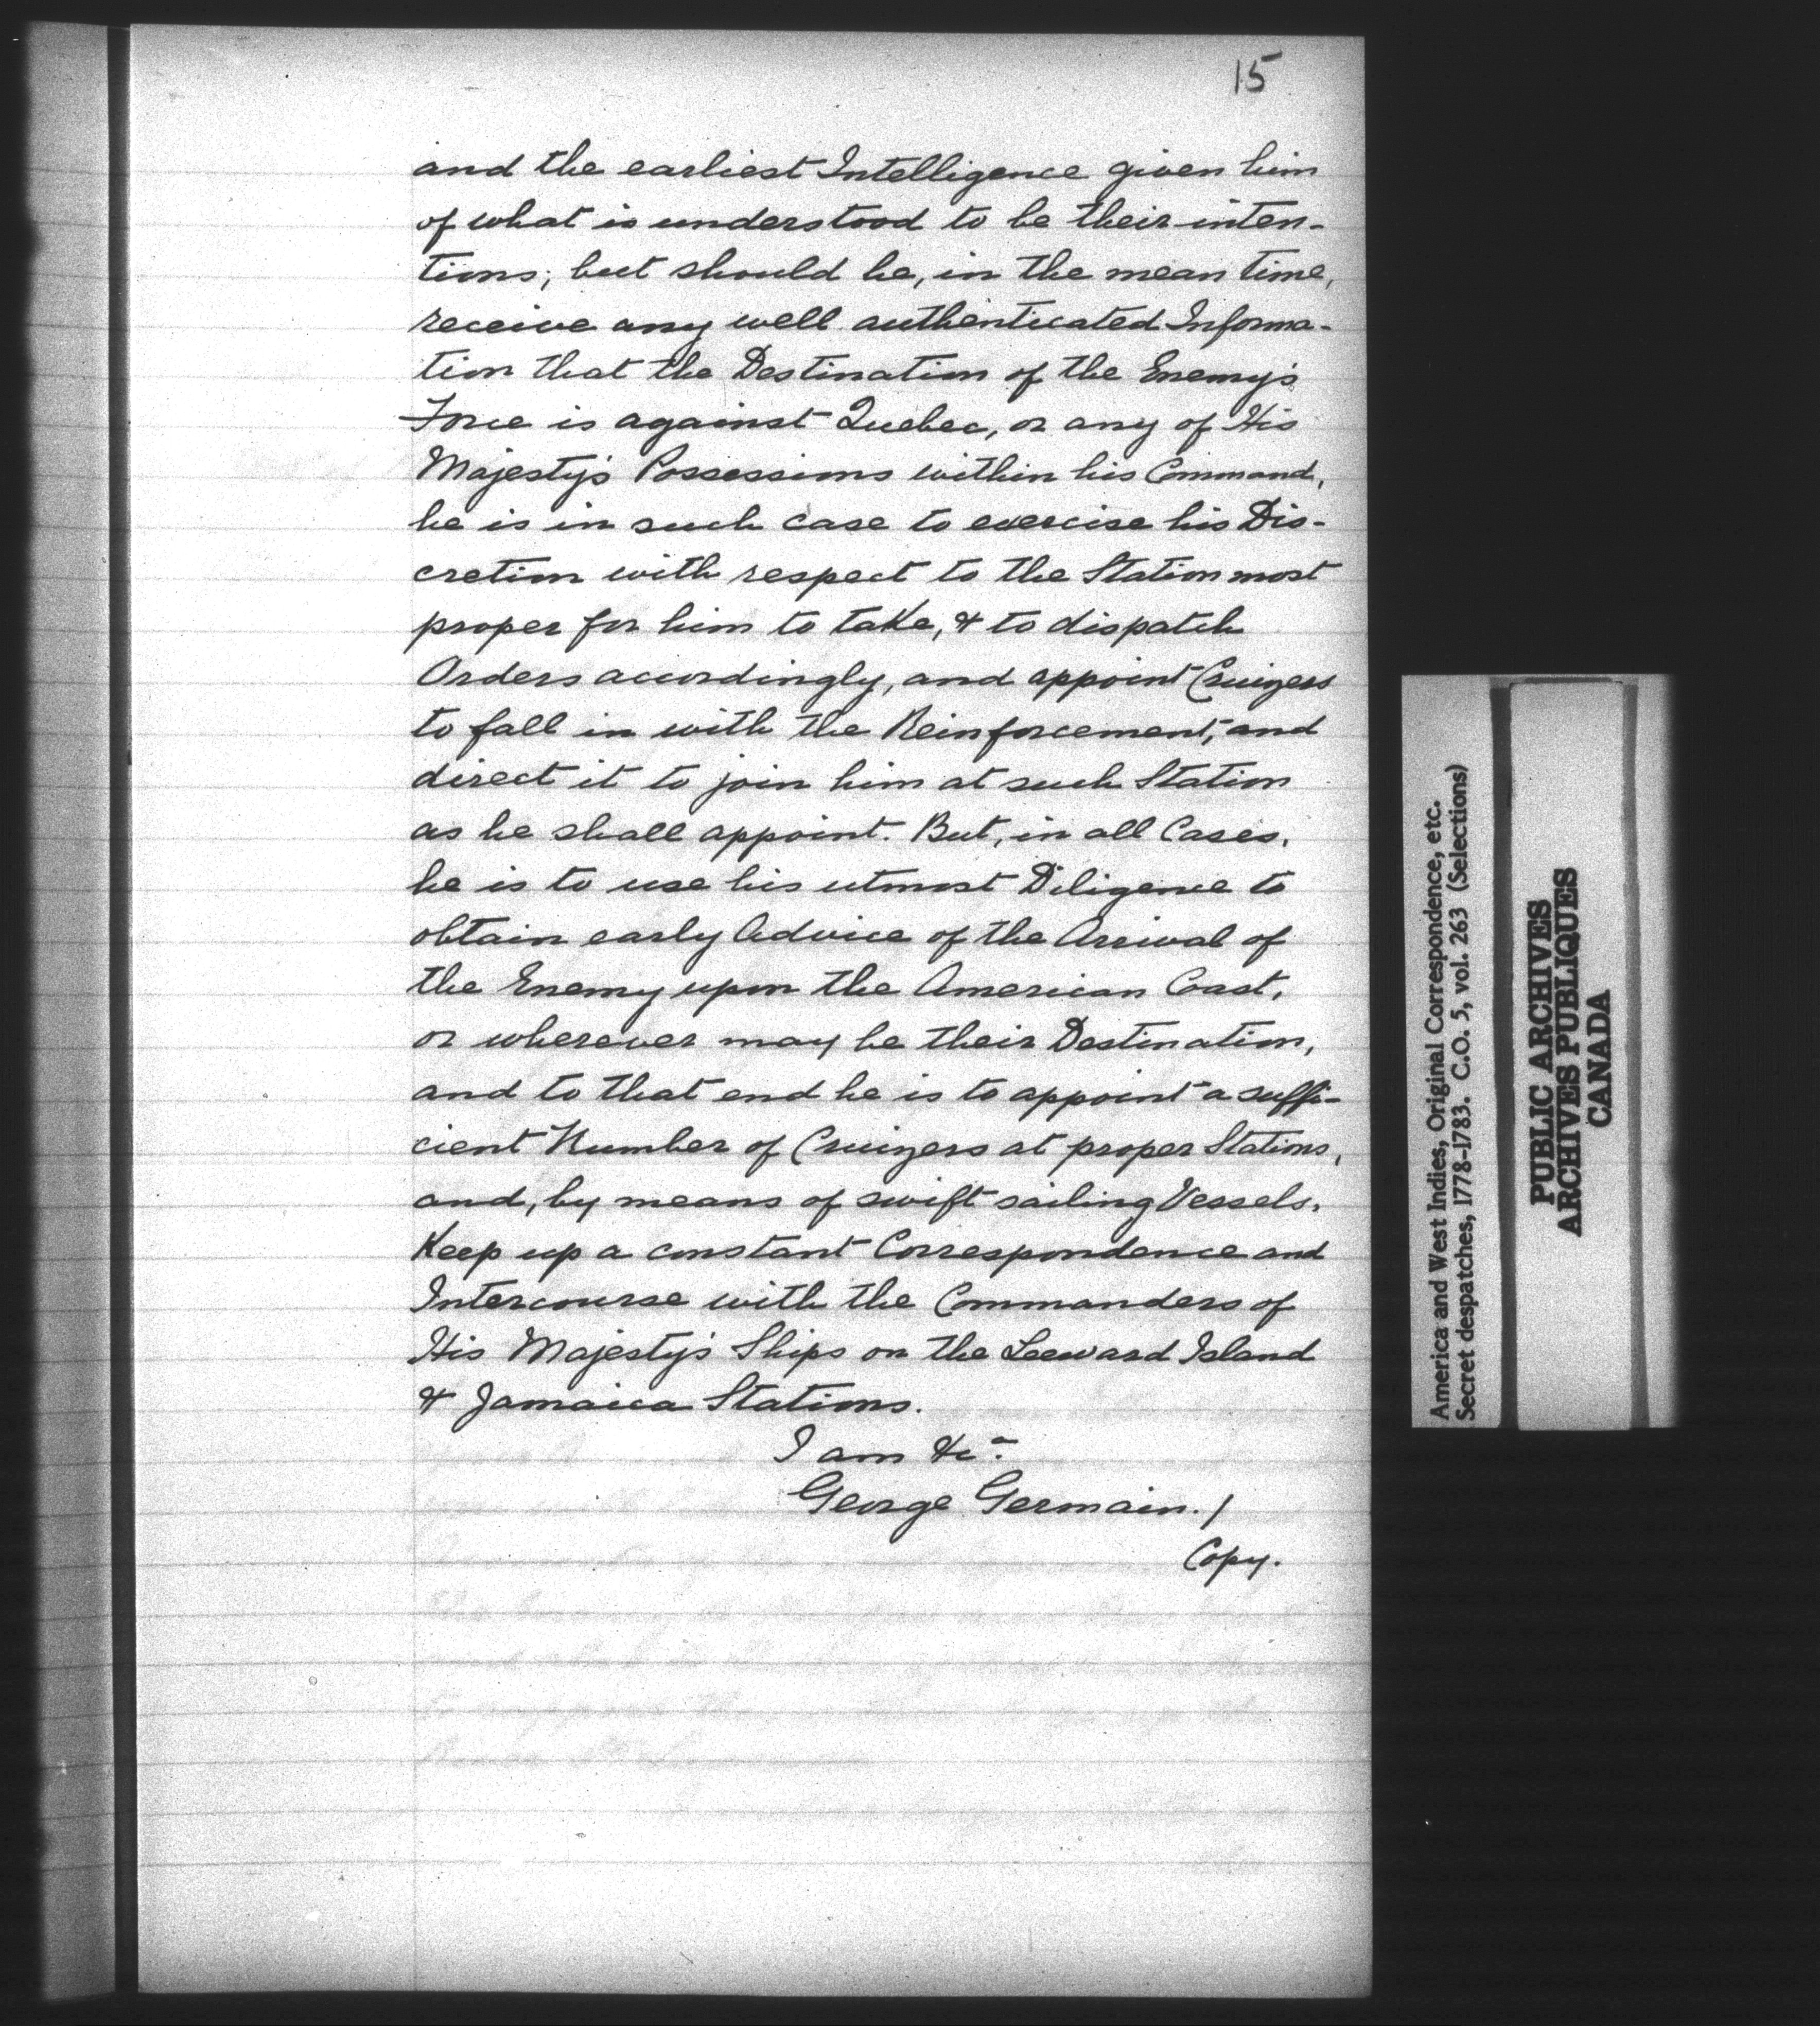 15
and the earliest Intelligence given him
of what is understood to be their inten-
tions; but should he, in the mean time,
receive any well authenticated Informa-
tion that the Destination of the Enemy's
Force is against Quebec, or any of His
Majesty's Possessions within his Command,
he is in such case to exercise his Dis-
cretion with respect to the Station most
proper for him to take, & to dispatch
Orders accordingly, and appoint Cruizers
to fall in with the Reinforcement, and
direct it to join him at such Station
as he shall appoint. But, in all Cases,
he is to use his utmost Diligence to
obtain early Advice of the Arrival of
the Enemy upon the American Coast,
or wherever may be their Destination,
and to that end he is to appoint a suffi-
cient Number of Cruizers at proper Stations,
and, by means of swift sailing Vessels,
Keep up a constant Correspondence and
Intercourse with the Commanders of
His Majesty's Ships on the Leeward Island
& Jamaica Stations.
I am &ca.
George Germain./
Copy.
America and West Indies, Original Correspondence, etc.
Secret despatches, 1778-1783. C.O. 5, vol. 263 (Selections)
PUBLIC ARCHIVES
ARCHIVES PUBLIQUES
CANADA